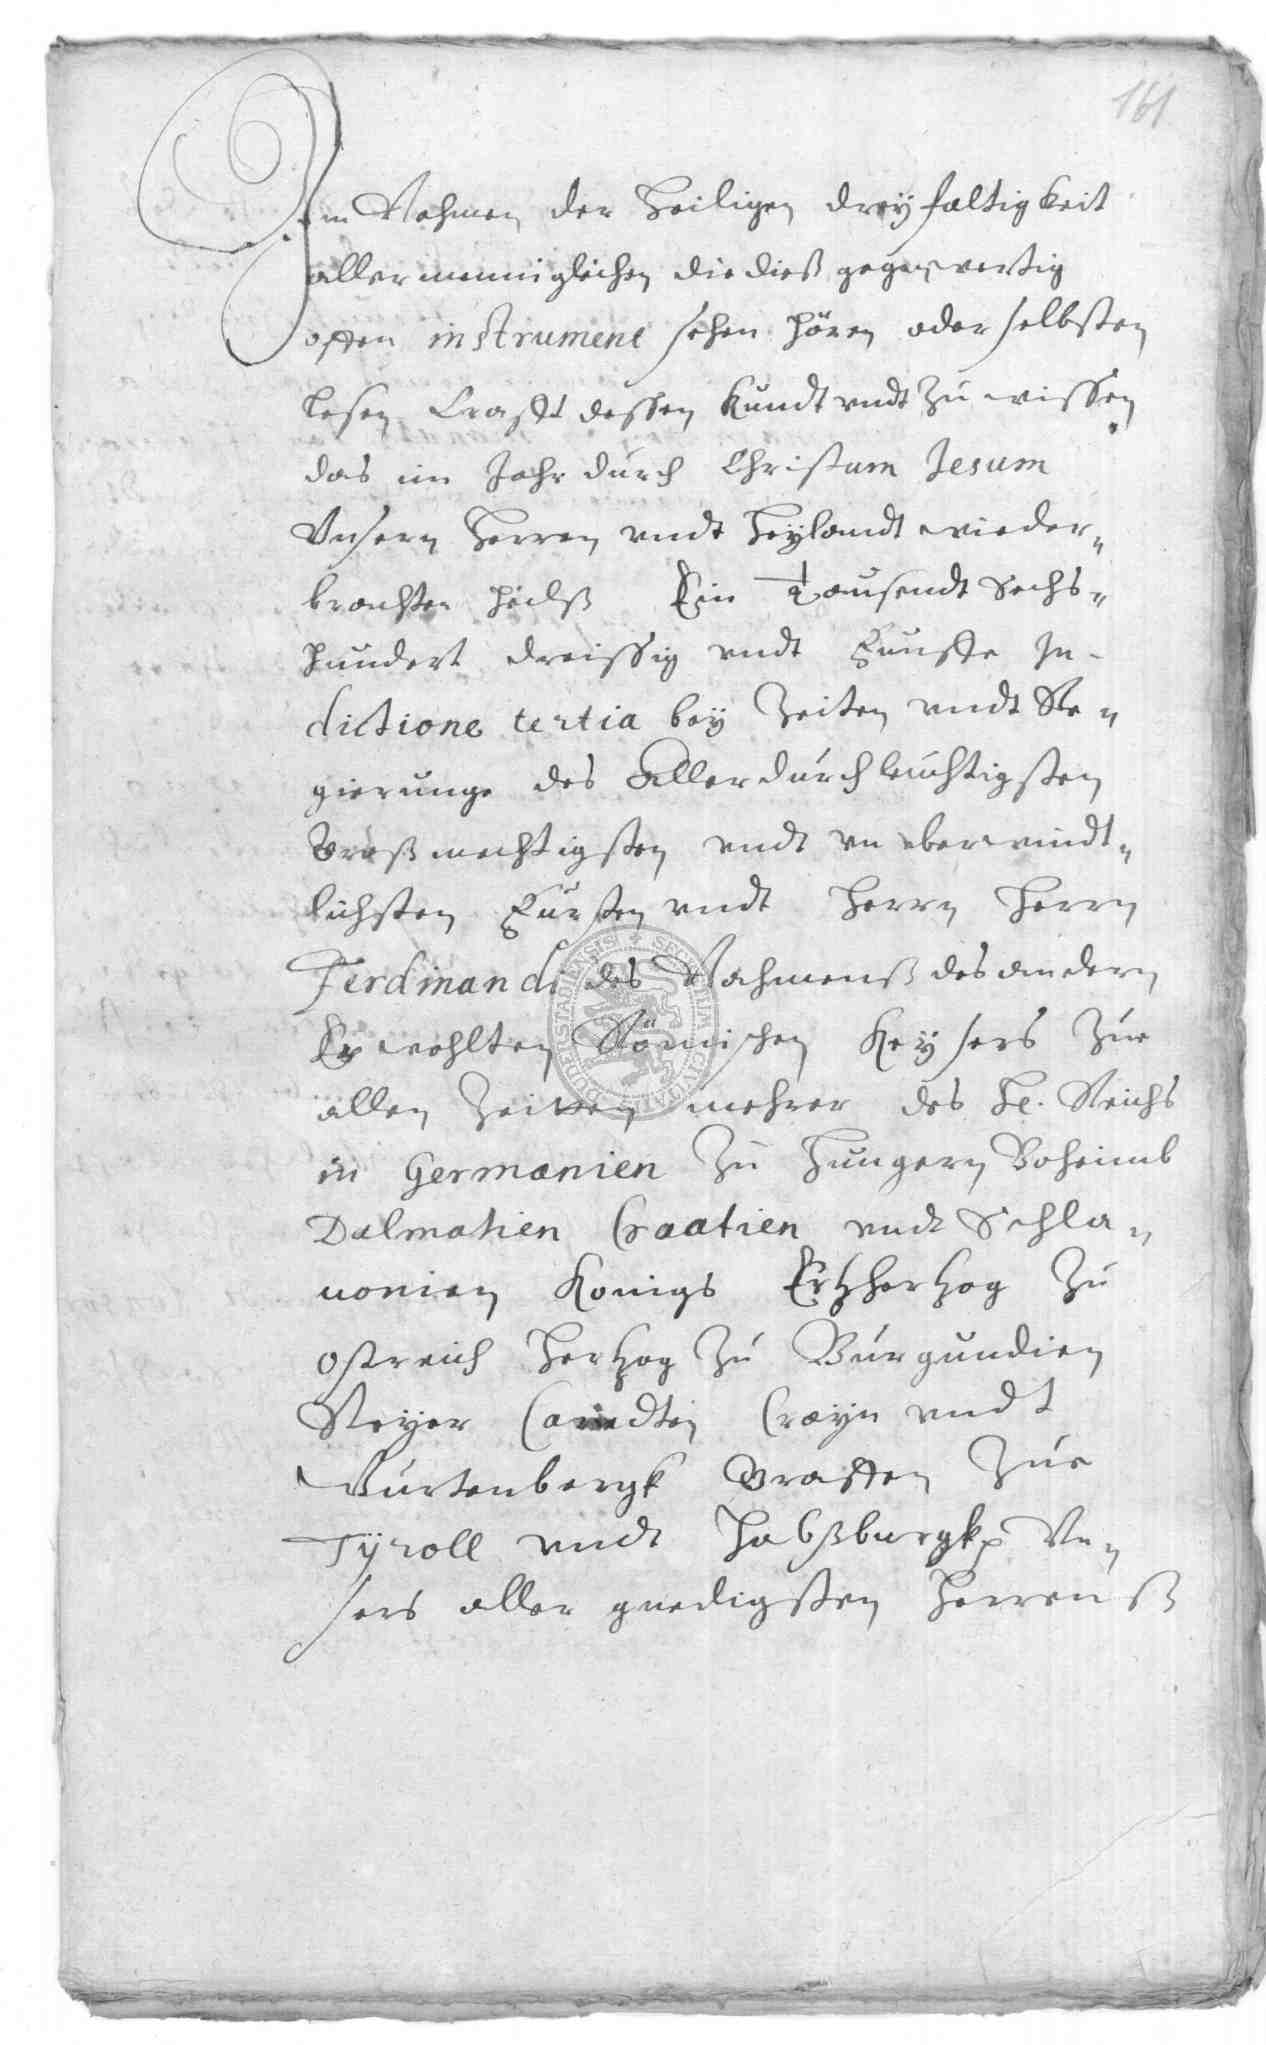 161
Im Nahmen der Heiligen dreyfaltigkeit
allermenniglichen die dieß gegenwertig
offen instrument sehen hören oder selbsten
lesen Crafft dessen Kundt vndt Zu wissen
das im Jahr durch Christum Jesum
Vnsern Herren vndt Heylandt wieder„
brachten Heilß Ein Tausendt Sechs„
hundert dreissig vndt Funffe In-
dictione tertia bey Zeiten vndt Re„
gierunge des Allerdurchleuchtigsten
Großmechtigsten vndt vn vberwindt„
lichsten Fürsten vndt Herrn Herrn
Ferdinandi des Nahmenß des andern
Erwohlten Römischen Keysers Zue
allen Zeitten mehrer des He. Reichs
in Germanien Zu Hungern Boheimb
Dalmatien Craatien vndt Schla„
uonien Konigs Ertzhertzog Zu
ostreich Hertzog Zu Burgundien
Steyer Carndten Crayn vndt
Wurtenbergk Graffen Zue
Tyroll vndt Habßburgk Vn„
sers aller gnedigsten Herrenß
SECRETUM CIVITATIS DUDERSTADIENSIS